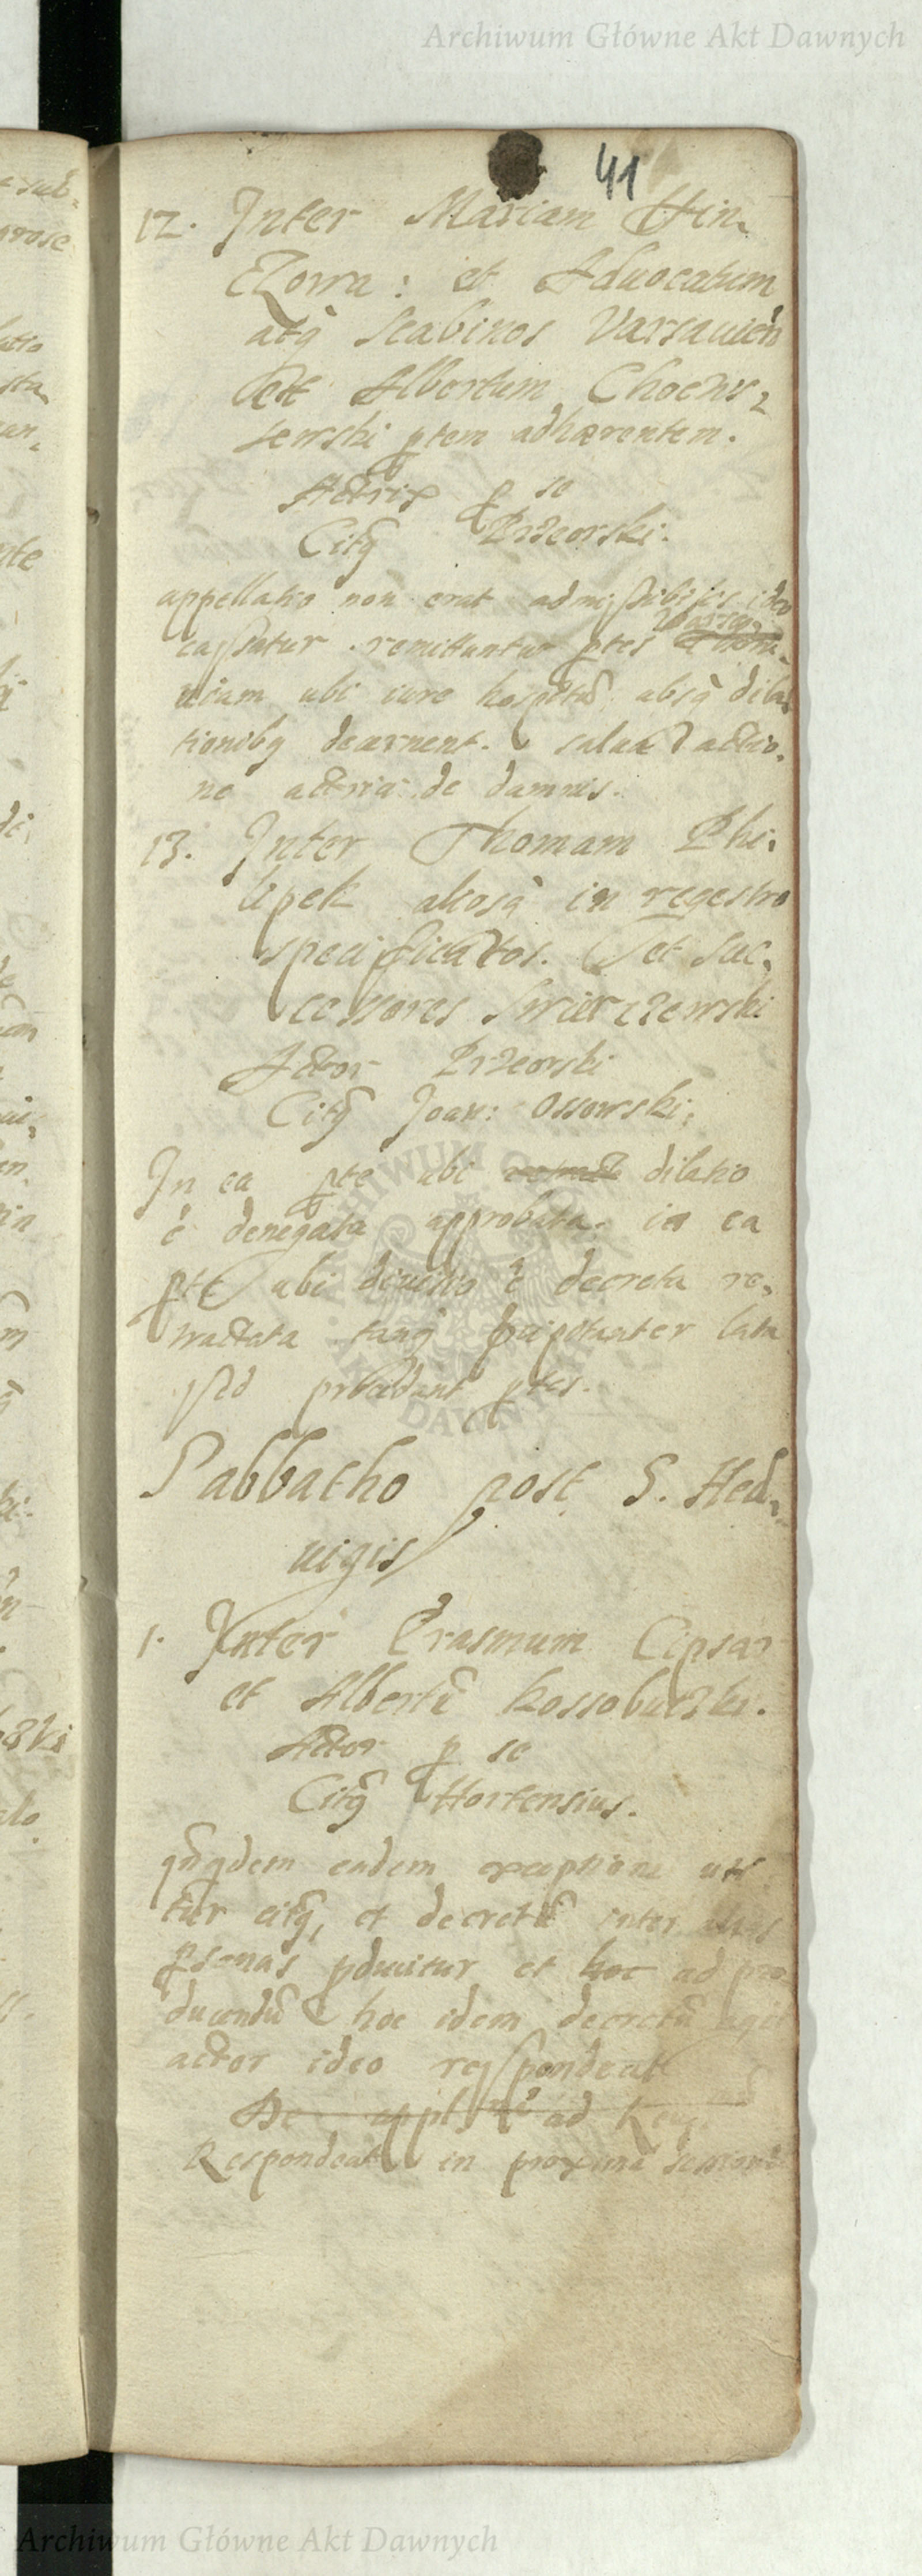 Archiwum Główne Akt Dawnych
41
12. Inter Mariam Hin,
czowa: et Aduocatum
atq̃ Scabinos Varsauien̄
et Albertum Chocisz,
sewski ptem adhærentem.
Actrix p se
Citg̃ Przeorski.
appellatio non erat admissibilis ideo
cassatur. remittuntur ptes Varsa,
uiam ubi iure hospitũ absq̃ dila,
tionibq decernent. salua actio,
ne actricis de damnis.
13. Inter Thomam Phi,
lipek aliosq̃ in regestro
specificatos. et Suc,
cessores Swierczewski
Actor Przeorski
Citg̃ Joan: Ossowski.
In ea pte ubi dilatio
ẽ denegata approbata. in ea
pte ubi diuisio ẽ decreta re,
tractata tanq̃ lata
ptes.
Sabbatho post S. Hed,
uigis
1. Inter Erasmum Cipsar
et Albertũ Kossobudzki.
Actor p se
Citg̃ Hortensius.
qñqdem eadem exceptione uti
tur citg̃, et decretũ inter alias
psonas pducitur et hoc ad pro
ducendũ hoc idem decretũ agit
actor ideo respondeat
De appl̃ne ad Reg
Respondeat in proxima
Archiwum Główne Akt Dawnych